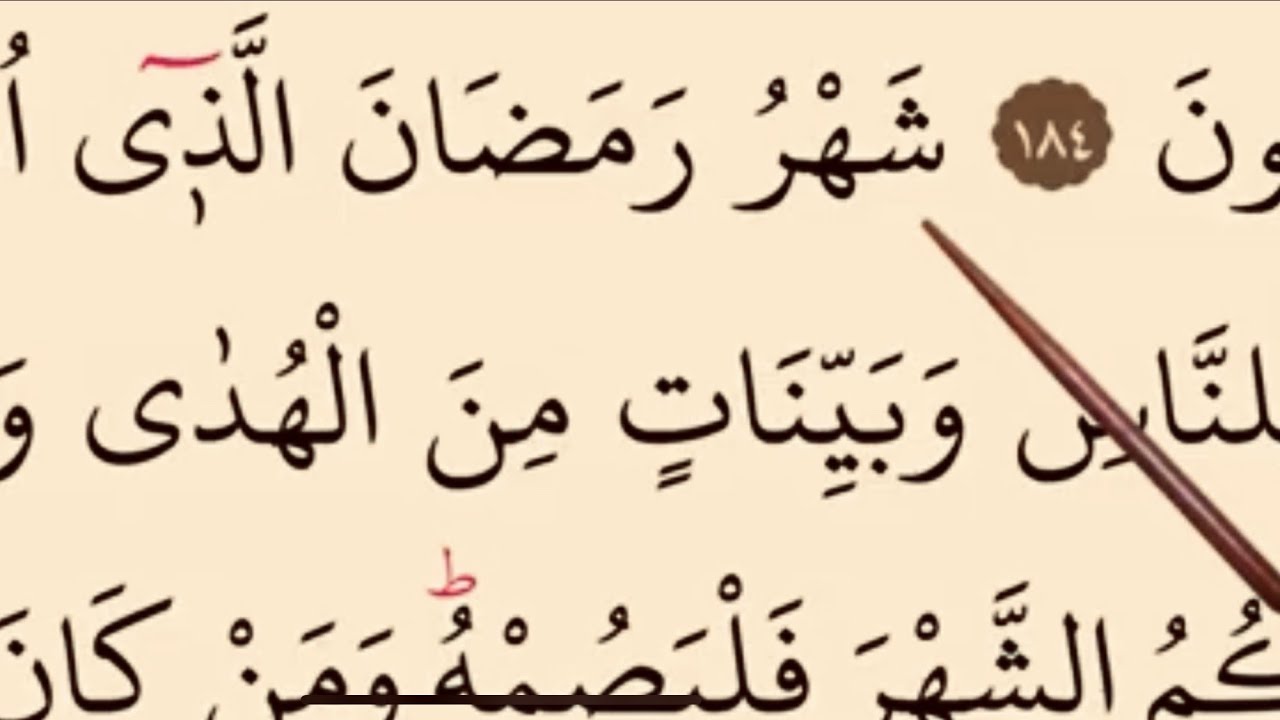 ونَ ١٨٤ شَهْرُ رَمَضَانَ الَّذٖٓى اُ
لِلنَّاسِ وَبَيِّنَاتٍ مِنَ الْهُدٰى وَ
كُمُ الشَّهْرَ فَلْيَصُمْهُؕ وَمَنْ كَانَ